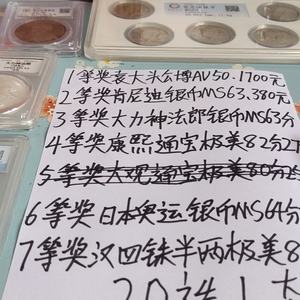 1等奖袁大头公博AU50.1700元
2等奖肯尼迪银币MS63.380元
3等奖大力神法郎银币MS63分
4等奖康熙通宝极美82分2
5等奖大观通宝极美80分
6等奖日本奥运银币MS64分
7等奖汉四铢半两极美8